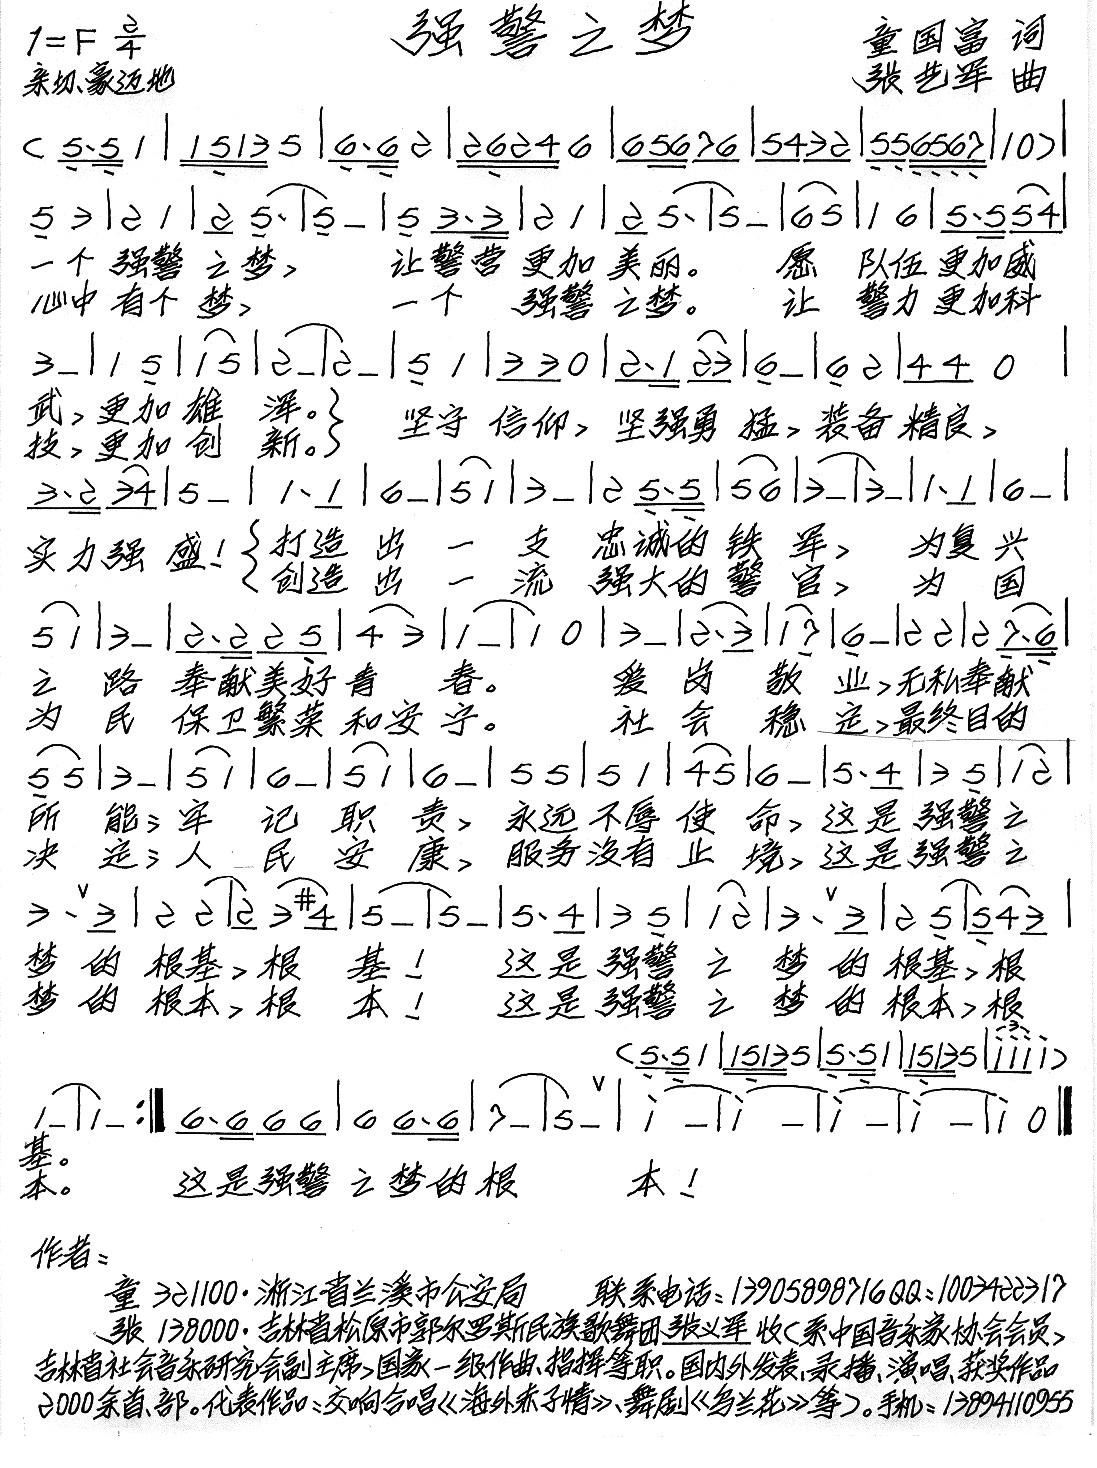 强警之梦
1=F 2/4
童国富 词
亲切、豪迈地
张艺军 曲
( 5·5 1 | 1513 5 | 6·6 2 | 2624 6 | 656 76 | 5432 | 556567 | 10) |
5 3 | 2 1 | 2 5· | 5 – | 5 3·3 | 2 1 | 2 5· | 5 – | 65 | 1 6 | 5·5 54 |
一个 强警 之梦, 让警营 更加 美丽。 愿 队伍 更加威
心中 有个 梦, 一个 强警 之梦。 让 警力 更加科
3 – | 1 5 | 15 | 2 – | 2 – | 5 1 | 33 0 | 2·1 23 | 6 – | 6 2 | 44 0 |
武, 更加 雄 浑。} 坚守 信仰, 坚强勇 猛, 装备 精良,
技, 更加 创 新。}
3·2 34 | 5 – | 1·1 | 6 – | 51 | 3 – | 2 5·5 | 56 | 3 – | 3 – | 1·1 | 6 – |
实力强 盛! {打造 出 一 支 忠诚的 铁 军, 为复 兴
{创造 出 一 流 强大的 警 官, 为 国
51 | 3 – | 2·2 25 | 4 3 | 1 – | 1 0 | 3 – | 2·3 | 17 | 6 – | 22 | 2 7·6 |
之 路 奉献美好 青 春。 爱 岗 敬 业, 无私奉献
为 民 保卫繁荣 和安 宁。 社 会 稳 定, 最终目的
55 | 3 – | 51 | 6 – | 51 | 6 – | 55 | 51 | 45 | 6 – | 5·4 | 3 5 | 12 |
所 能; 牢 记 职 责, 永远 不辱 使 命, 这是 强警 之
决 定; 人 民 安 康, 服务 没有 止 境, 这是 强警 之
3·∨3 | 2 2 | 2 3#4 | 5 – | 5 – | 5·4 | 3 5 | 12 | 3·∨3 | 2 5 | 543 |
梦 的 根基, 根 基! 这是 强警 之 梦 的 根基, 根
梦 的 根本, 根 本! 这是 强警 之 梦 的 根本, 根
( 5·5 1 | 1513 5 | 5·5 1 | 1513 5 | 1111 )
1 – | 1 – :‖ 6·6 66 | 6 6·6 | 7 – | 5 – ∨ | 1 – | 1 – | 1 – | 1 – | 1 0 ‖
基。
本。 这是强警 之梦的 根 本!
作者:
童 321100·浙江省兰溪市公安局 联系电话:13905898716 QQ:1003422317
张 138000·吉林省松原市郭尔罗斯民族歌舞团 张义军 收(系中国音乐家协会会员,
吉林省社会音乐研究会副主席,国家一级作曲、指挥等职。国内外发表、录播、演唱、获奖作品
2000余首、部。代表作品:交响合唱《海外赤子情》、舞剧《乌兰花》等)。手机:13894110955